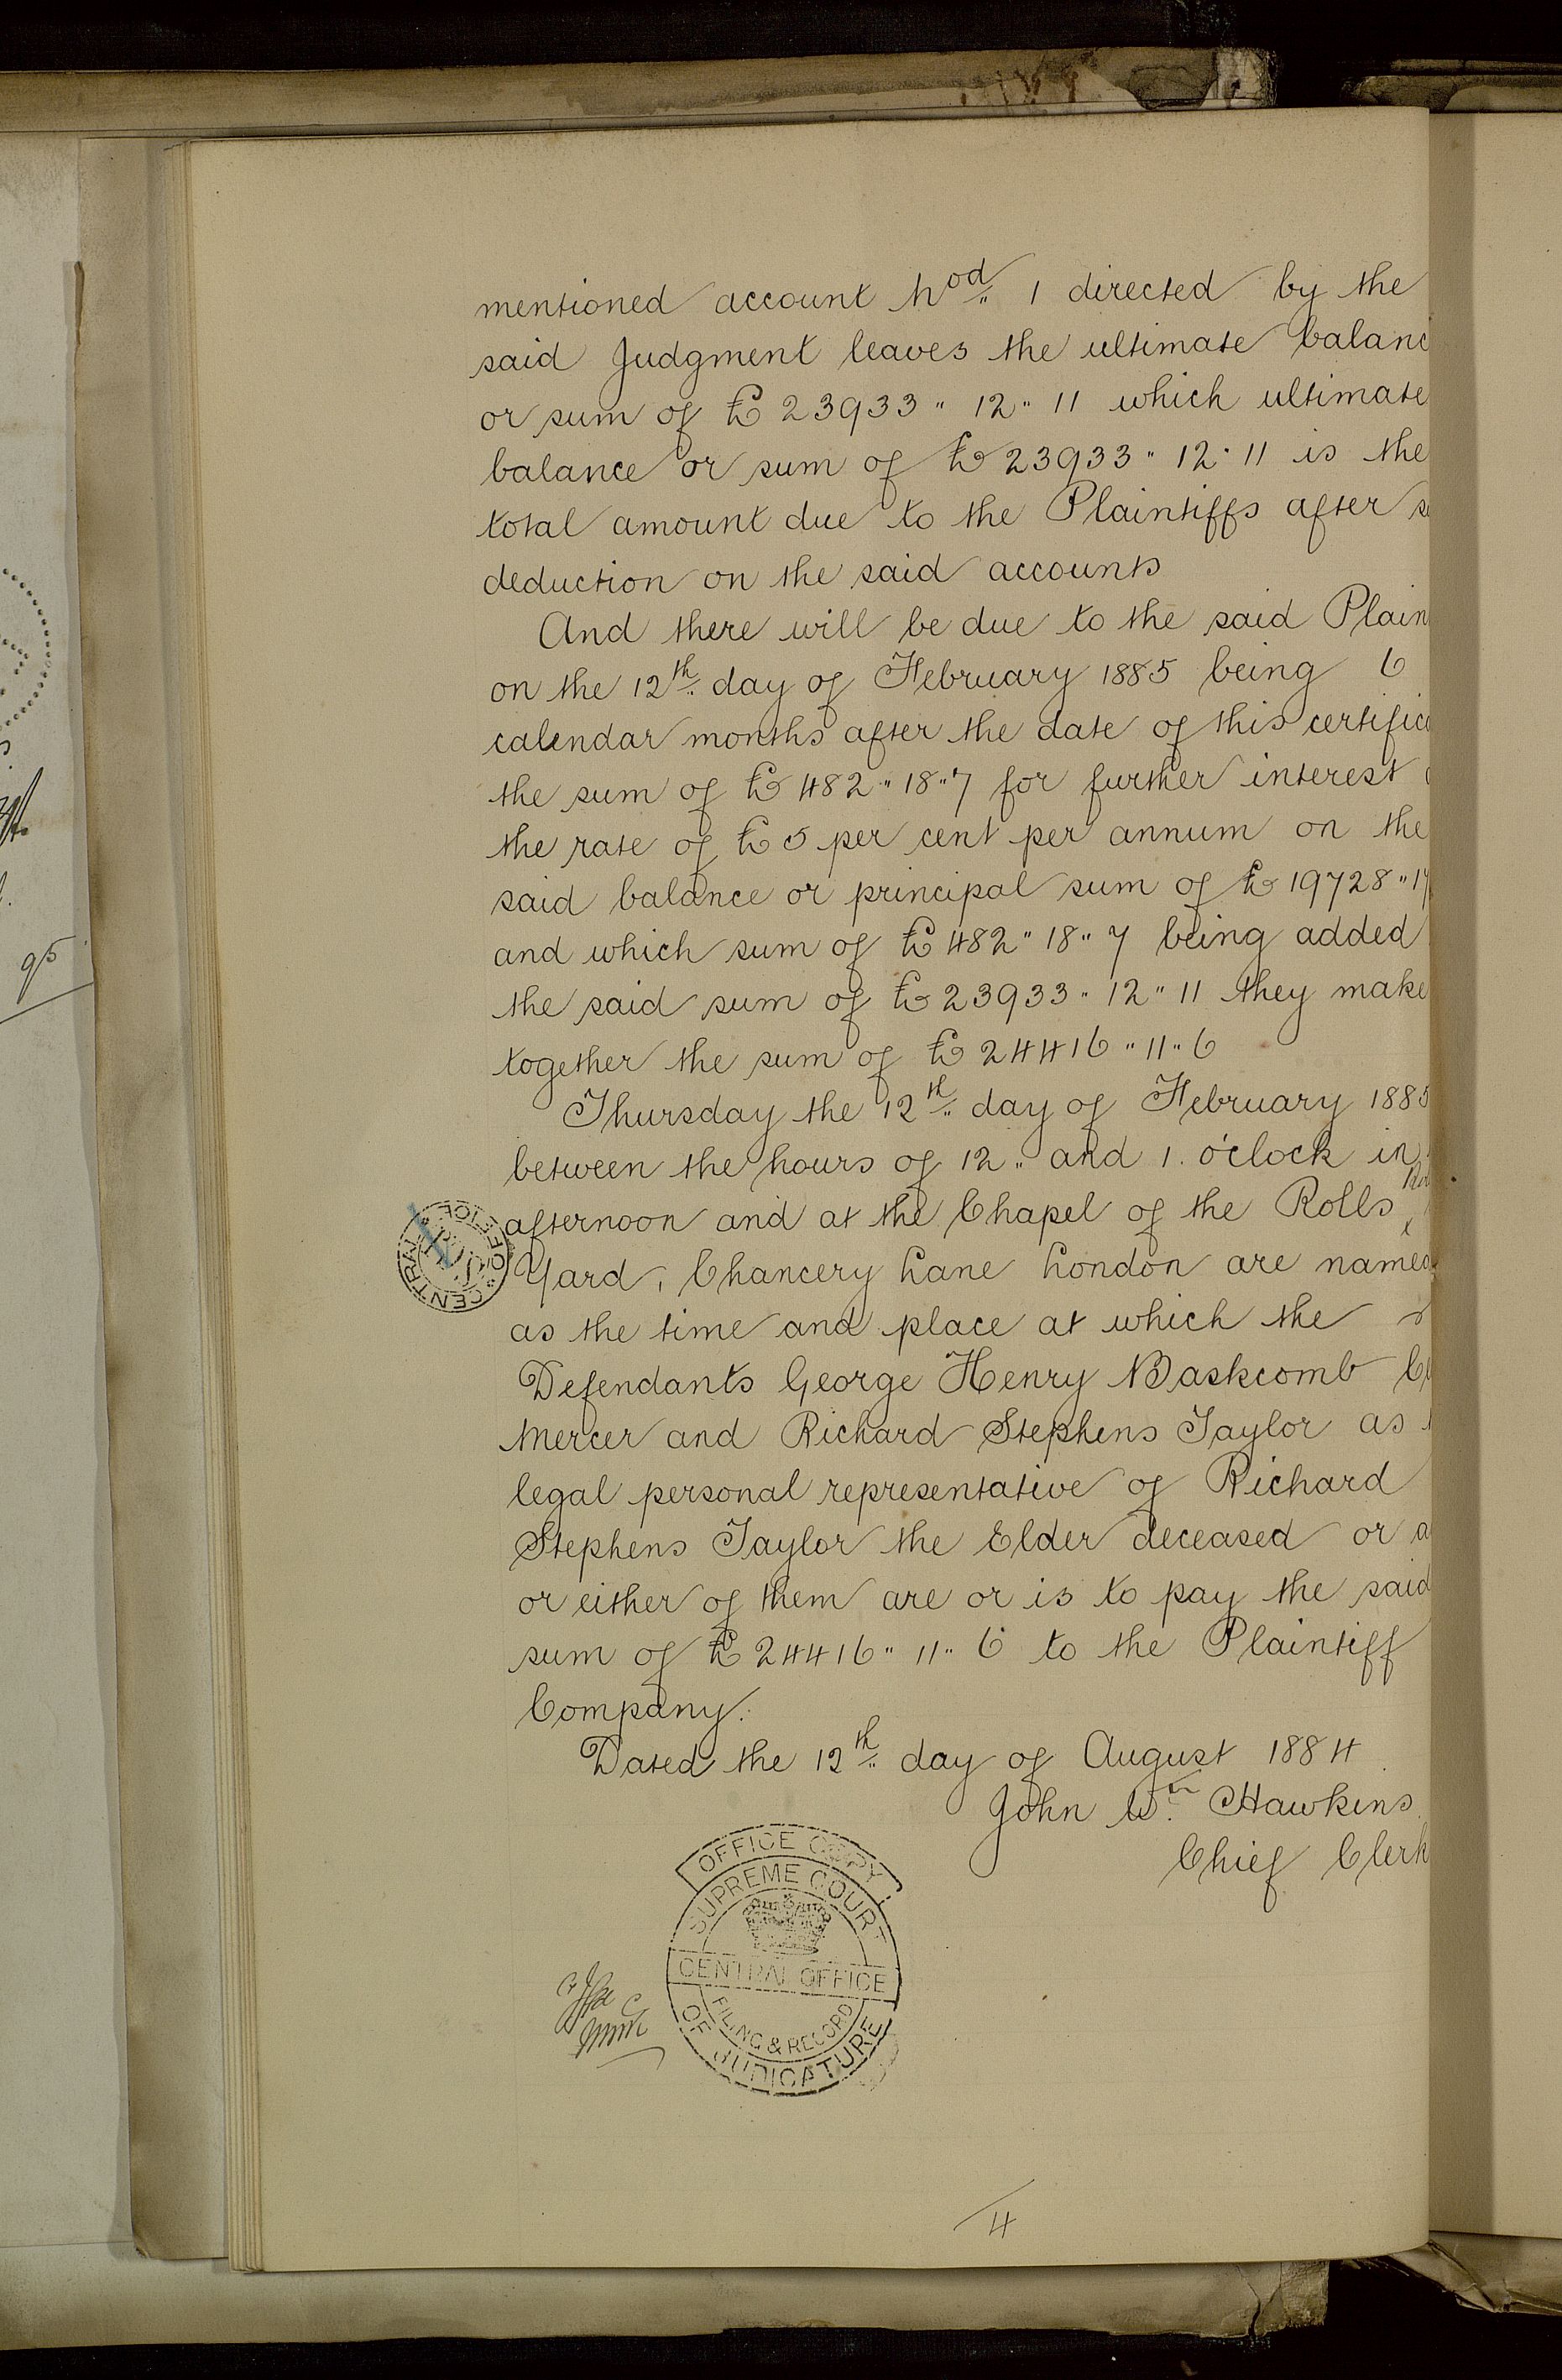 mentioned account No 1 directed by the
said Judgment leaves the ultimate balanc
or sum of £23933" 12" 11 which ultimate
balance or sum of £23933" 12" 11 is the
total amount due to the Plaintiffs after
deduction on the said accounts
And there will be due to the said Plain
on the 12th day of February 1885 being 6
calendar months after the date of this certific
the sum of £482" 18" 7 for further interest
the rate of £5 per cent per annum on the
said balance or principal sum of £19728" 17
and which sum of £482" 18" 7 being added
the said sum of £23933" 12" 11 they make
together the sum of £24416" 11" 6
Thursday the 12th day of February 1885
between the hours of 12" and 1. o'clock in
afternoon and at the Chapel of the Rolls
Yard, Chancery Lane London are named
as the time and place at which the
Defendants George Henry Baskcomb
Mercer and Richard Stephens Taylor as
legal personal representative of Richard
Stephens Taylor the Elder deceased or a
or either of them are or is to pay the said
sum of £24416" 11" 6 to the Plaintiff
Company.
Dated the 12th day of August 1884
John Wm Hawkins
Chief Clerk
CENTRAL OFFICE
OFFICE COPY
SUPREME COURT
CENTRAL OFFICE
FILING & RECORD
OF JUDICATURE
4
95